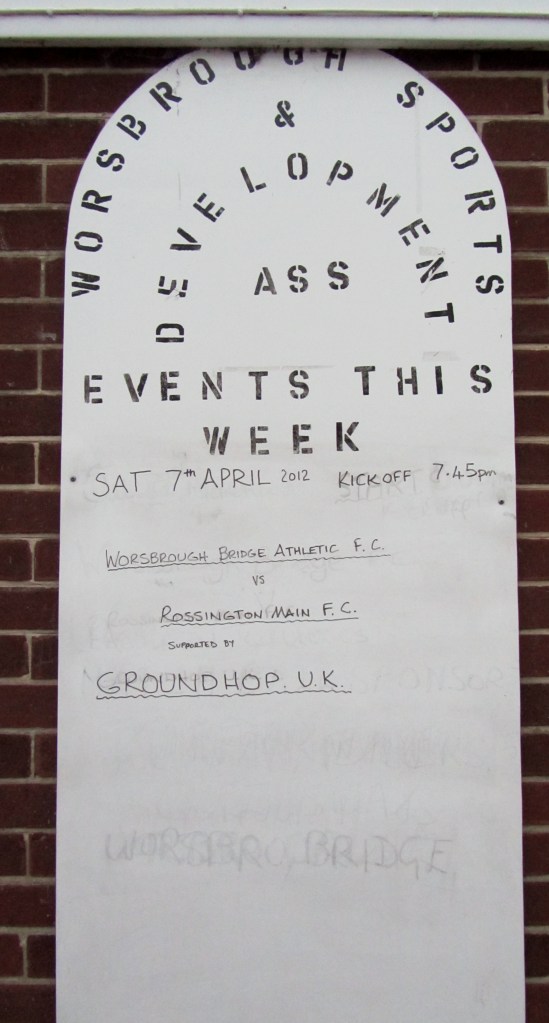 WORSBROUGH SPORTS
&
DEVELOPMENT
ASS
EVENTS THIS
WEEK
SAT 7th APRIL 2012 KICK OFF 7.45pm
WORSBROUGH BRIDGE ATHLETIC F.C.
VS
ROSSINGTON MAIN F.C.
SUPPORTED BY
GROUNDHOP. U.K.
BRIDGE